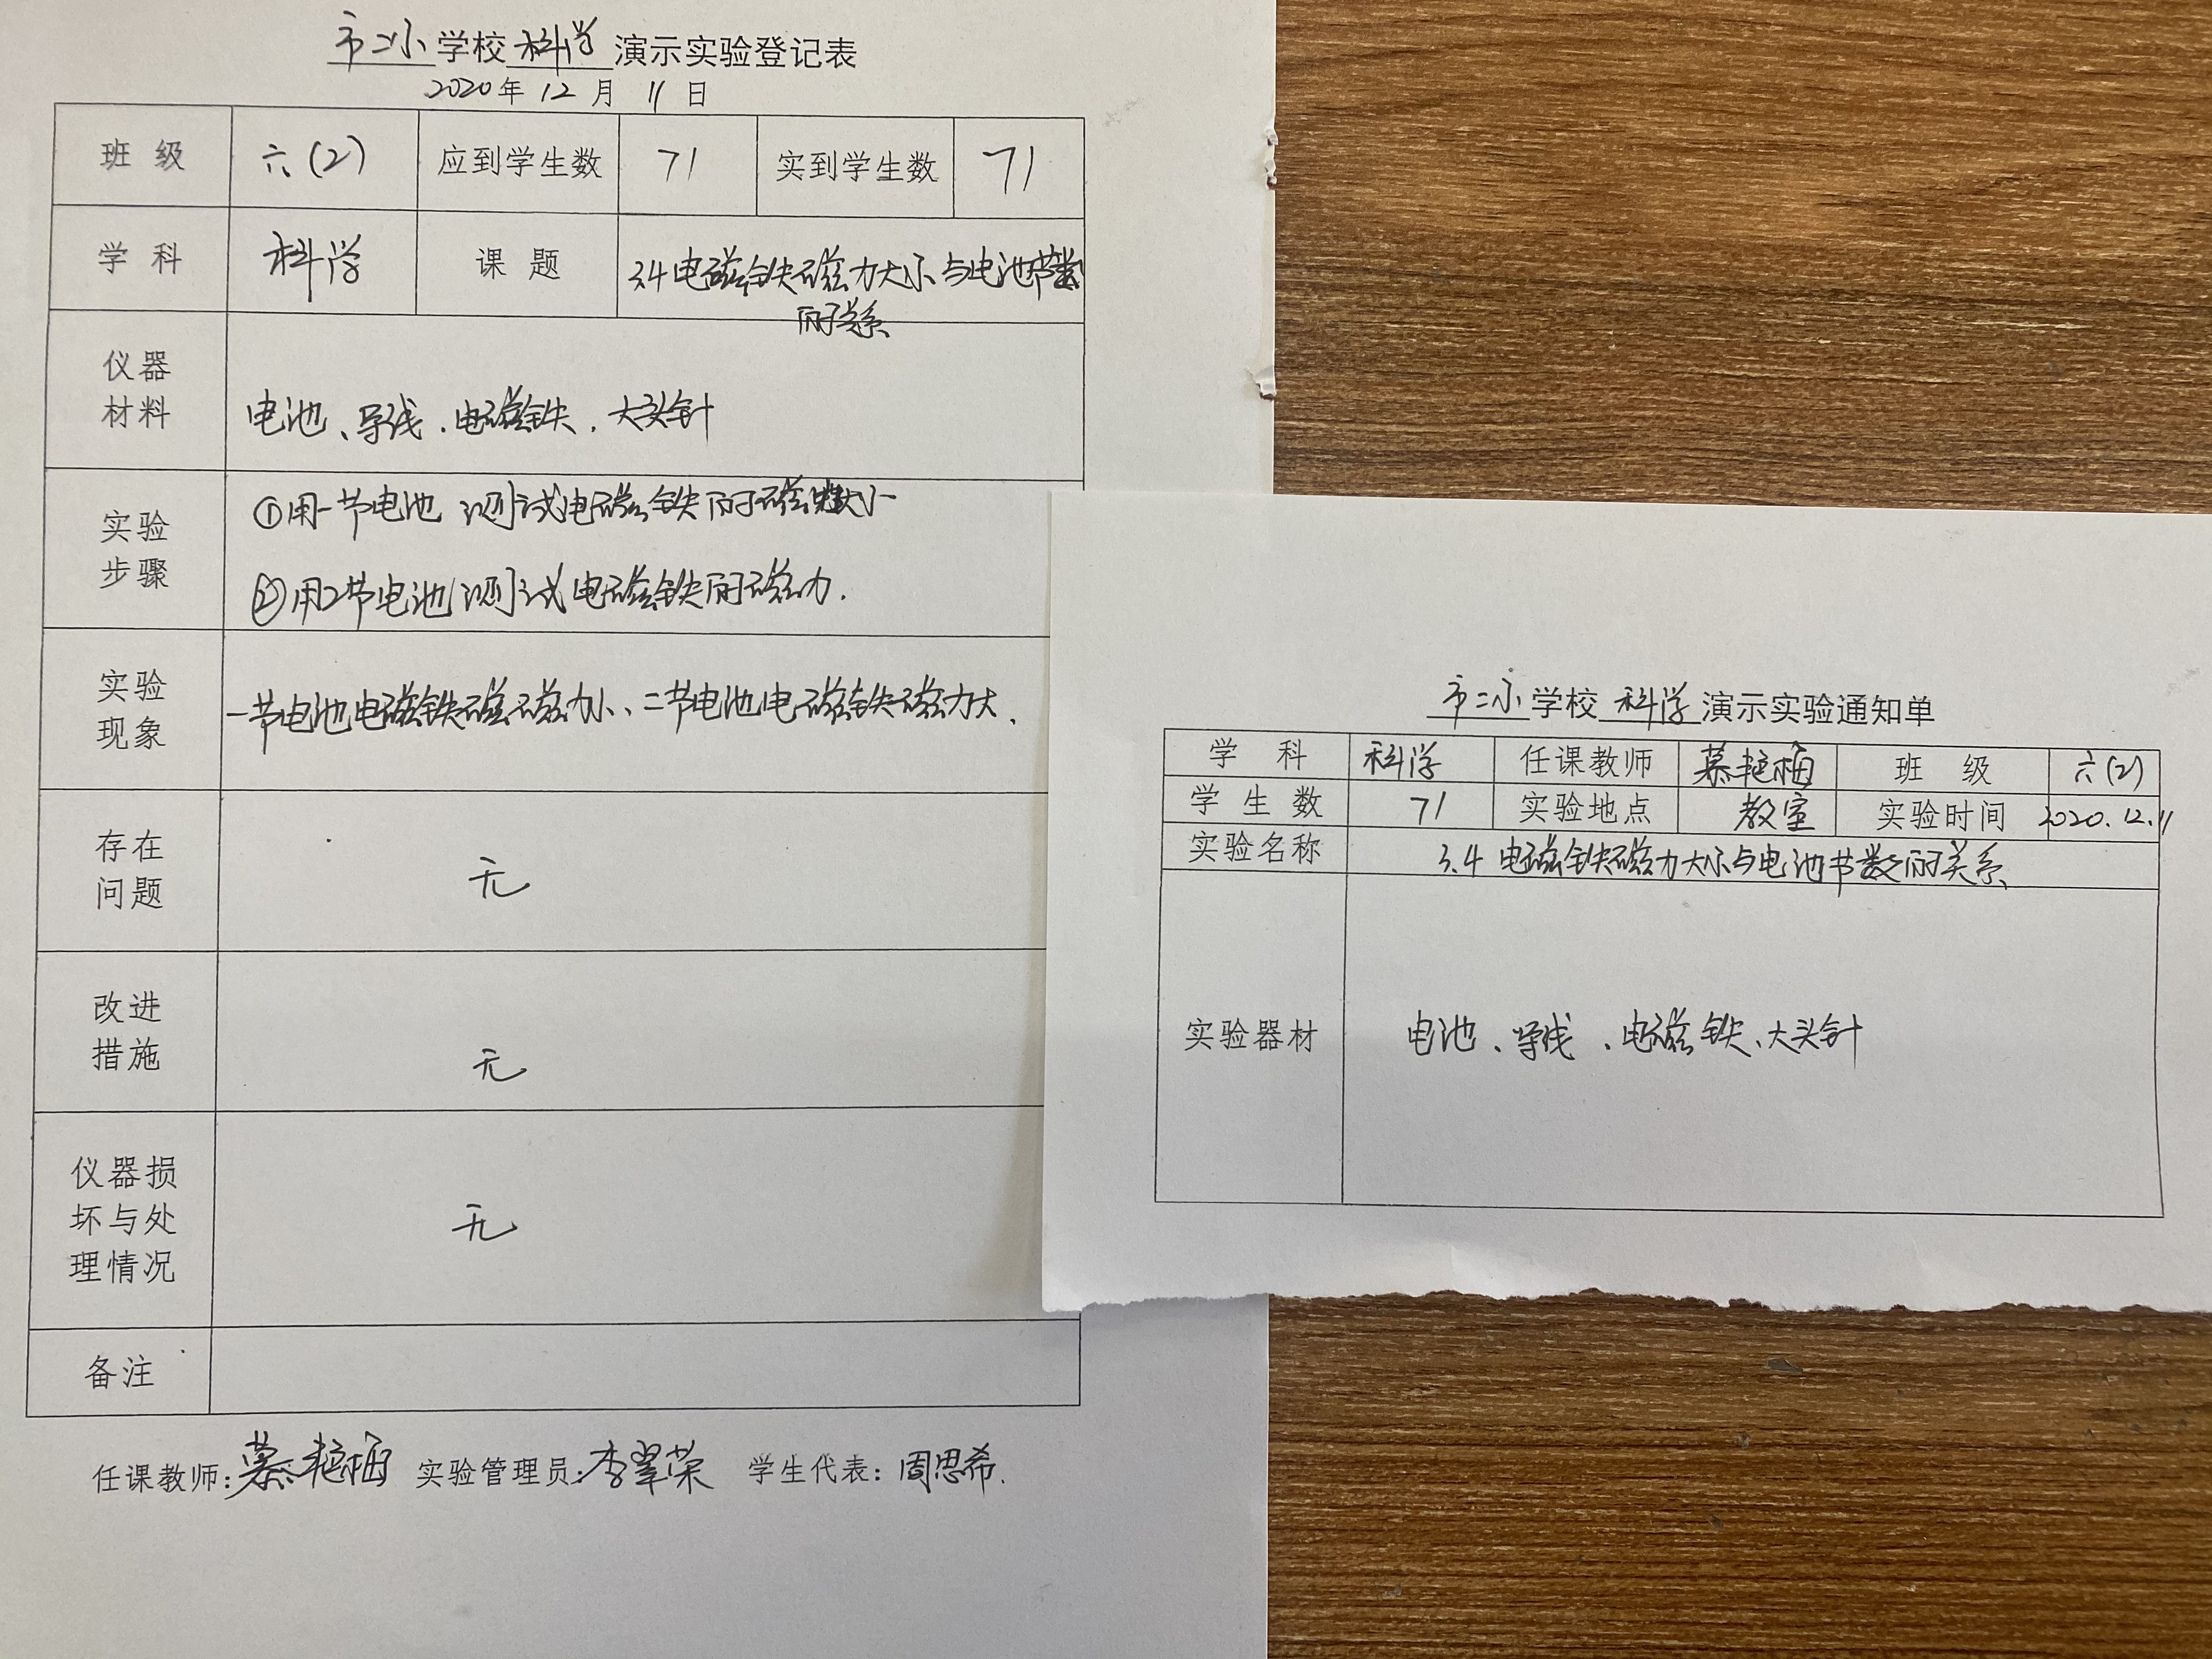 市二小学校科学演示实验登记表
2020年 12月 11日
班级 六(2) 应到学生数 71 实到学生数 71
学科 科学 课题 3.4电磁铁磁力大小与电池节数
的关系
仪器
材料
电池、导线、电磁铁、大头针
实验
步骤
①用一节电池测试电磁铁的磁大小
②用2节电池测试电磁铁的磁力.
实验
现象
一节电池电磁铁磁磁力小、二节电池电磁铁磁力大、
存在
问题
无
改进
措施
无
仪器损
坏与处
理情况
无
备注
任课教师:慕艳梅 实验管理员:李翠荣 学生代表:周思希.
市二小学校科学演示实验通知单
学科 科学 任课教师 慕艳梅 班级 六(2)
学生数 71 实验地点 教室 实验时间 2020.12.11
实验名称 3.4 电磁铁磁力大小与电池节数的关系
实验器材 电池、导线、电磁铁、大头针